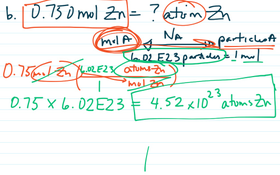 b. 0.750 mol Zn = ? atom Zn
mol A NA particles A
6.02E23 particles = 1 mol
0.75 mol Zn ( 6.02E23 atoms Zn / 1 mol Zn )
0.75 × 6.02E23 = 4.52 × 10²³ atoms Zn